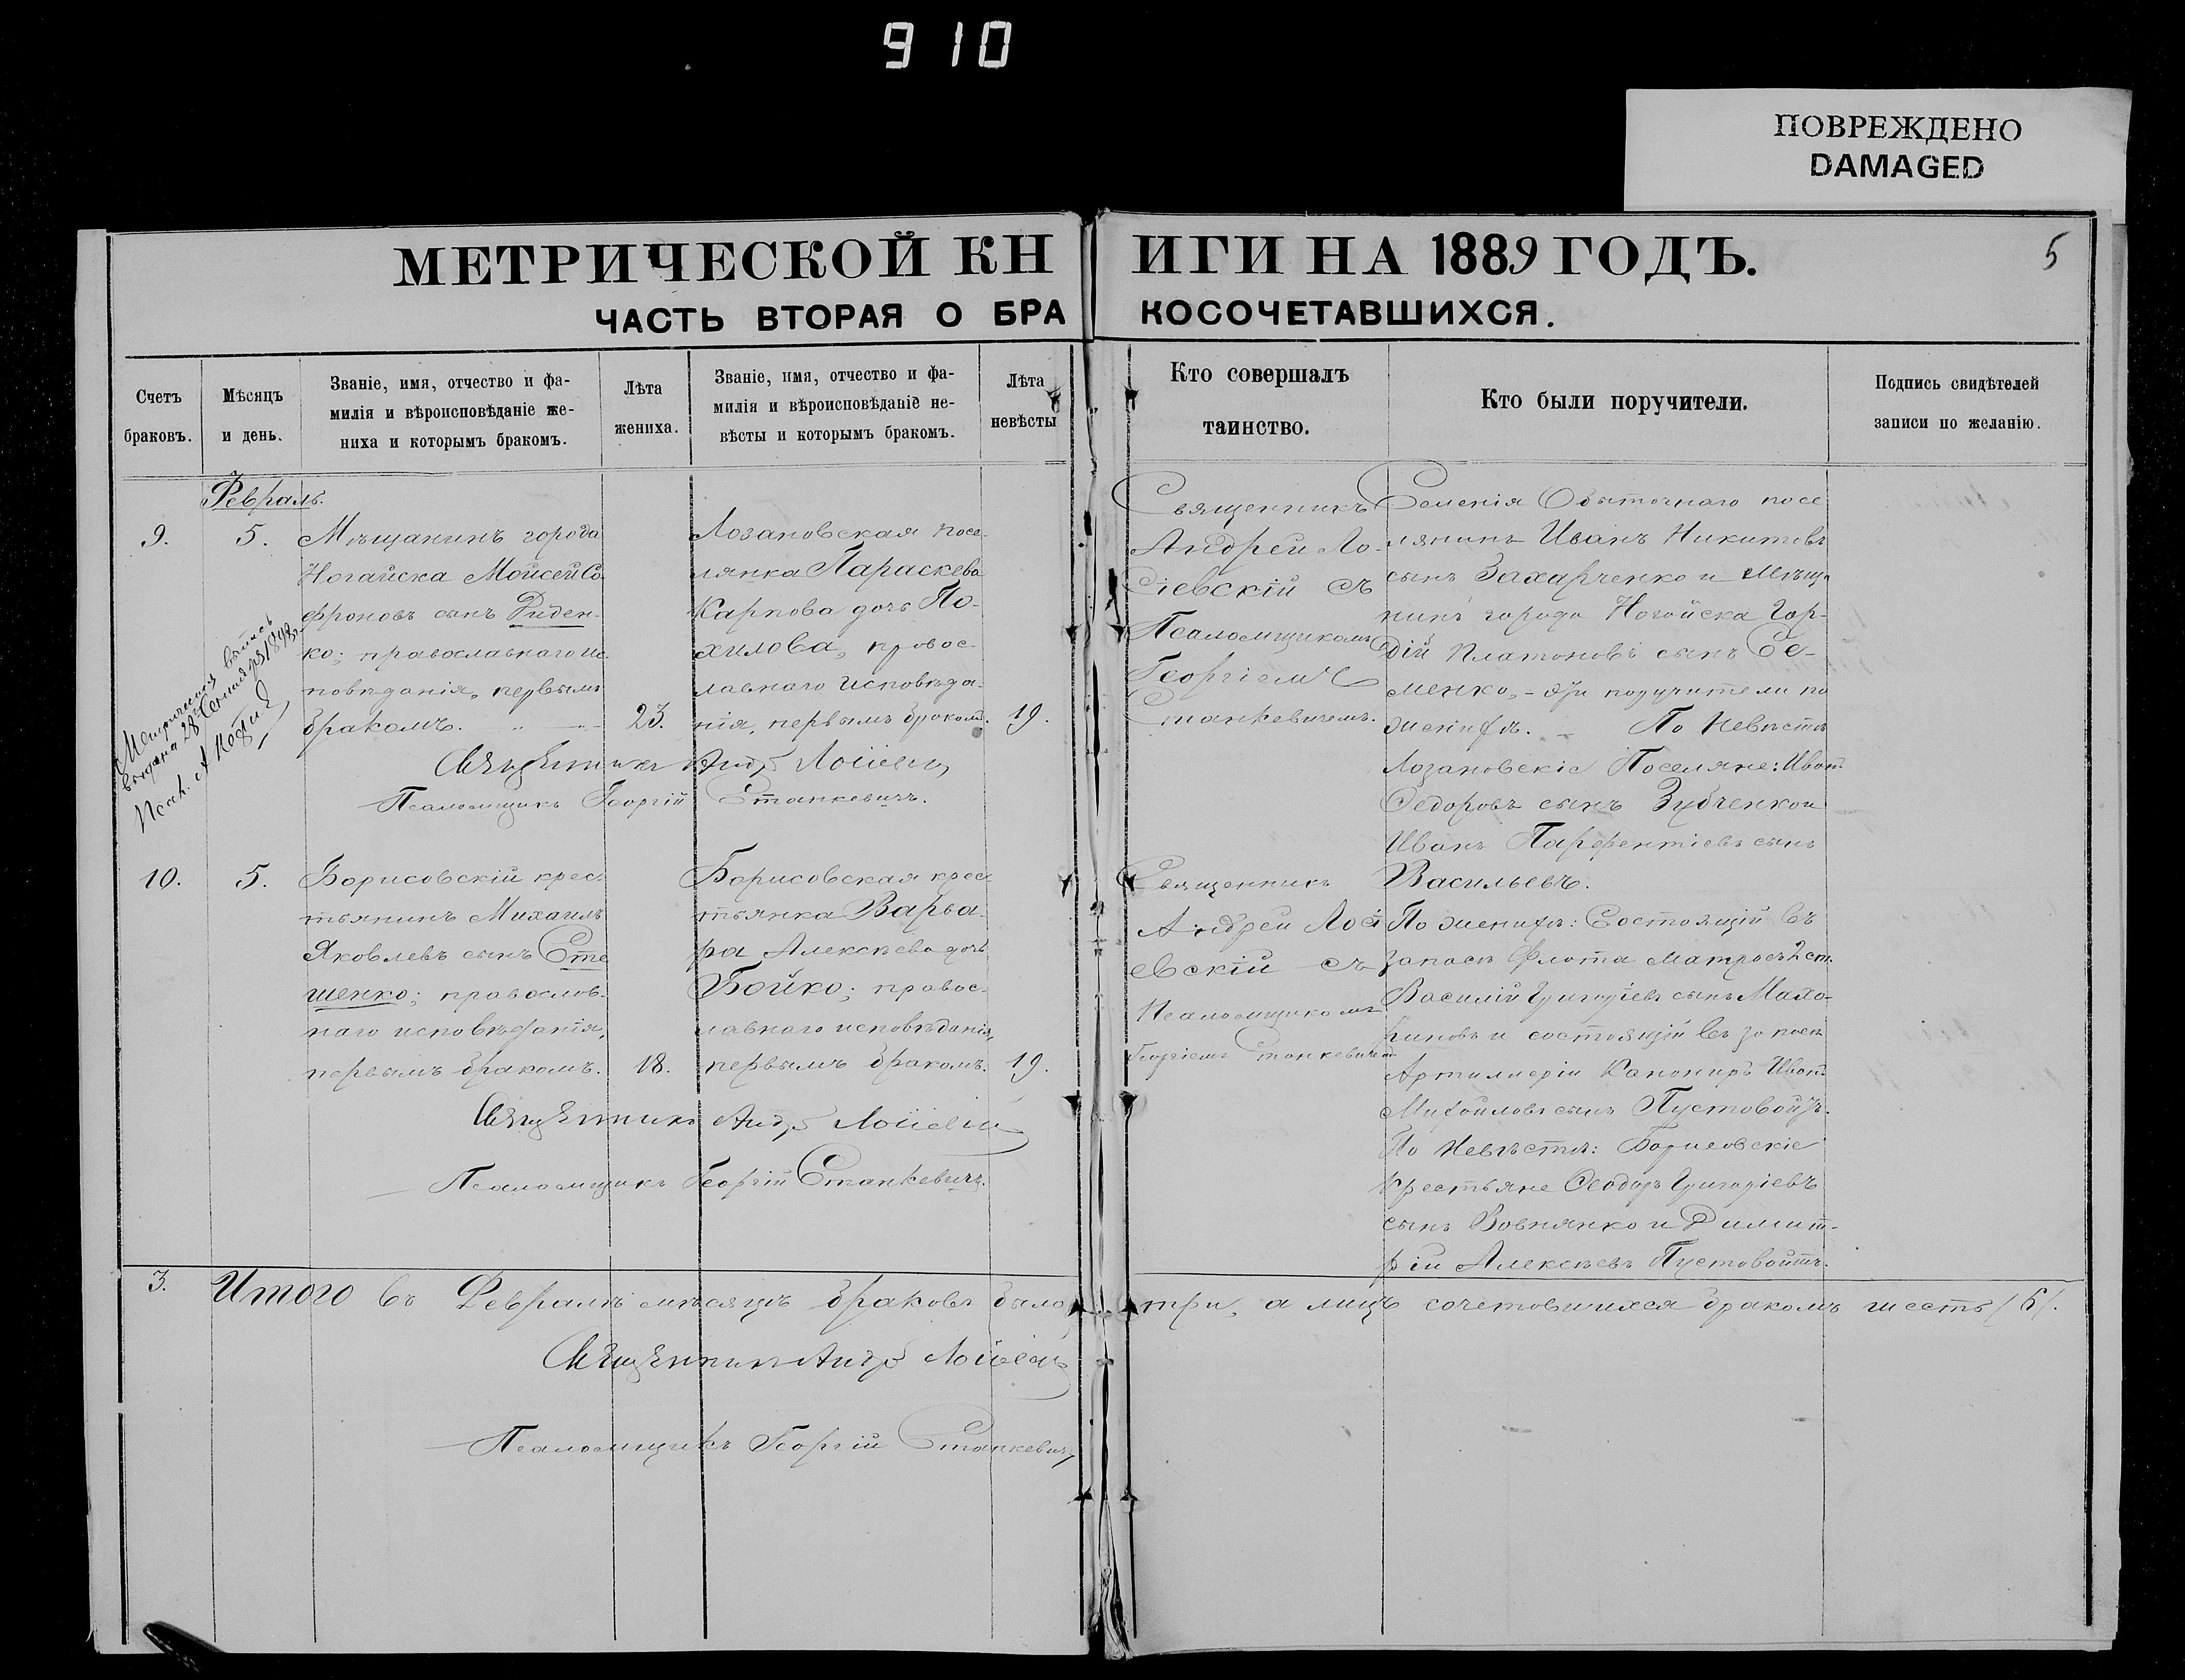 910
ПОВРЕЖДЕНО
DAMAGED
МЕТРИЧЕСКОЙ КНИГИ НА 1889 ГОДЪ.
5
ЧАСТЬ ВТОРАЯ О БРАКОСОЧЕТАВШИХСЯ.
Счетъ
браковъ.
Мѣсяцъ
и день.
Званіе, имя, отчество и фа-
милія и вѣроисповѣданіе же-
ниха и которымъ бракомъ.
Лѣта
жениха.
Званіе, имя, отчество и фа-
милія и вѣроисповѣданіе не-
вѣсты и которымъ бракомъ.
Лѣта
невѣсты
Кто совершалъ
таинство.
Кто были поручители.
Подпись свидѣтелей
записи по желанію.
Февраль.
9.
5.
Мѣщанинъ города
Ногайска Мойсей Со
фроновъ сынъ Диден-
ко; православнаго ис
повѣданія, первымъ
бракомъ.
23.
Лозановская посе-
лянка Параскева
Карпова дочь По-
хилова, правос-
лавнаго исповѣда-
нія, первымъ бракомъ.
19.
Священникъ
Андрей Ло-
сіевскій съ
Псаломщикомъ
Георгіемъ
Станкевичемъ.
Селенія Обыточнаго посе
лянинъ Иванъ Никитовъ
сынъ Захарченко и Мѣща
нинъ города Ногайска Гор-
дій Платоновъ сынъ Се-
менко, - эти поручители по
женихѣ. - По Невѣстѣ
Лозановскіе Поселяне: Иванъ
Федоровъ сынъ Зубченко и
Иванъ Парфентіевъ сынъ
Васильевъ.
Метрическая выпись
выдана 28 Сентября 1898
Псал. А.
Священникъ Андр Лосіевскій
Псаломщикъ Георгій Станкевичъ.
10.
5.
Борисовскій крес-
тьянинъ Михаилъ
Яковлевъ сынъ Сте
шенко; православ-
наго исповѣданія,
первымъ бракомъ.
18.
Борисовская крес-
тьянка Варва-
ра Алексѣева дочь
Бойко; правос-
лавнаго исповѣданія,
первымъ бракомъ.
19.
Священникъ
Андрей Лосі
евскій съ
Псаломщикомъ
Георгіемъ Станкевичемъ
По женихѣ: Состоящій въ
запасѣ Флота Матросъ 2 ст.
Василій Григоріевъ сынъ
и состоящій въ запасѣ
Артиллеріи Канониръ Иванъ
Михайловъ сынъ Пустовойтъ.
По Невѣстѣ: Борисовскіе
Крестьяне Феодоръ Григоріевъ
сынъ Вовнянко и Димит-
рій Алексѣевъ Пустовойтъ.
Священникъ Андр Лосіевскій
Псаломщикъ Георгій Станкевичъ.
3. Итого въ Февралѣ мѣсяцѣ браковъ было три, а лицъ сочетовшихся бракомъ шесть /6/.
Священникъ Андр Лосіевскій
Псаломщикъ Георгій Станкевичъ